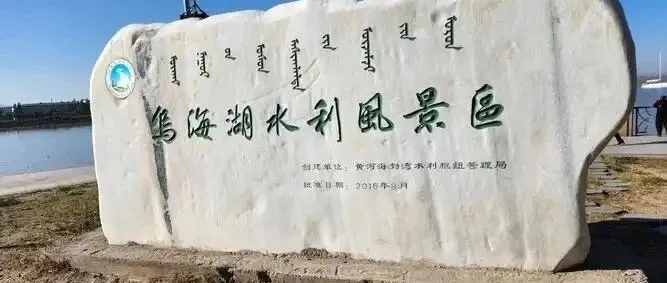 烏海湖水利風景區
创建单位：黄河海勃湾水利枢纽管理局
批准日期：2016年8月